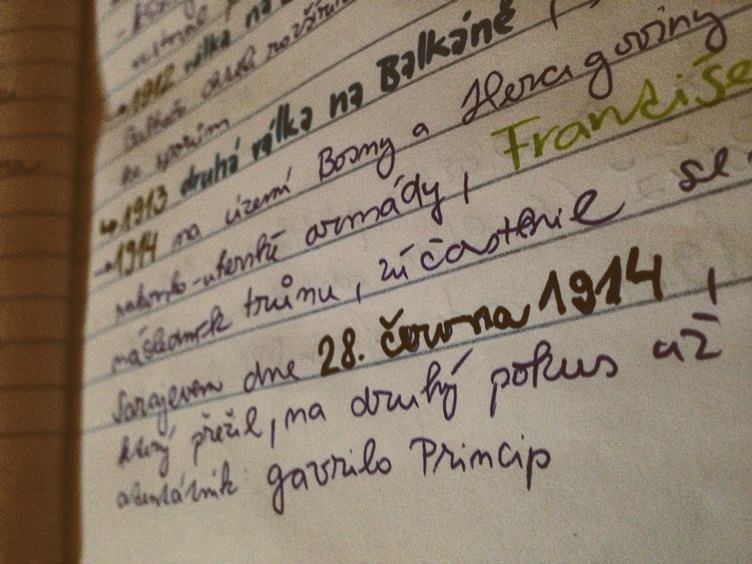 →1912 válka na
Balkáně
ke sporům
↳1913 druhá válka na Balkáně,
→1914 na území Bosny a Hercegoviny
rakousko-uherské armády, Františe
následník trůnu, zúčastnil se
Sarajevem dne 28. června 1914,
který přežil, na druhý pokus až
atentátník gavrilo Princip